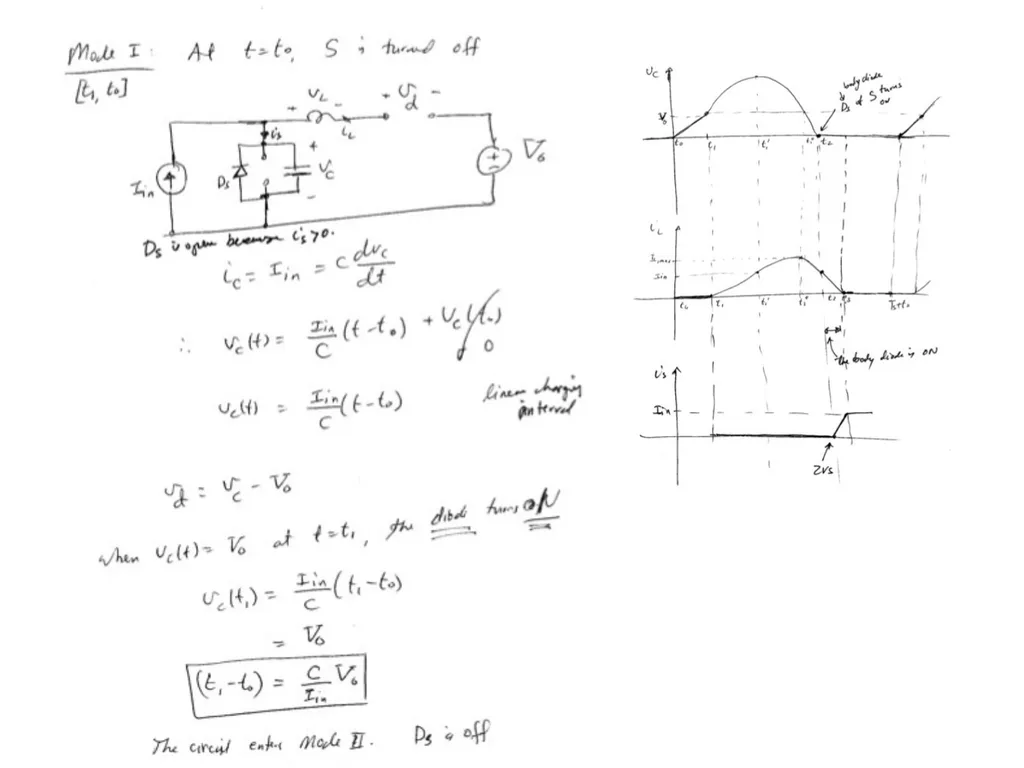 Mode I: At t=t₀, S is turned off
[t₁, t₀]
+ v_L - + v_d -
i_L
i_s
+
I_in D_s v_c + - V₀
-
D_s is open because i_s>0.
i_c = I_in = C dv_c/dt
∴ v_c(t) = I_in/C (t-t₀) + v_c(t₀) 0
v_c(t) = I_in/C (t-t₀) linear charging interval
v_d = v_c - V₀
when v_c(t)= V₀ at t=t₁, the diode turns ON
v_c(t₁) = I_in/C (t₁-t₀)
= V₀
(t₁-t₀) = C/I_in V₀
The circuit enter Mode II. D_s is off
v_c
body diode
D_s of S turns
ON
V₀
t₀ t₁ t₁' t₁" t₂
i_L
I_in
t₀ t₁ t₁' t₁" t₂ t₃ T_s+t₀
the body diode is ON
i_s
I_in
ZVS